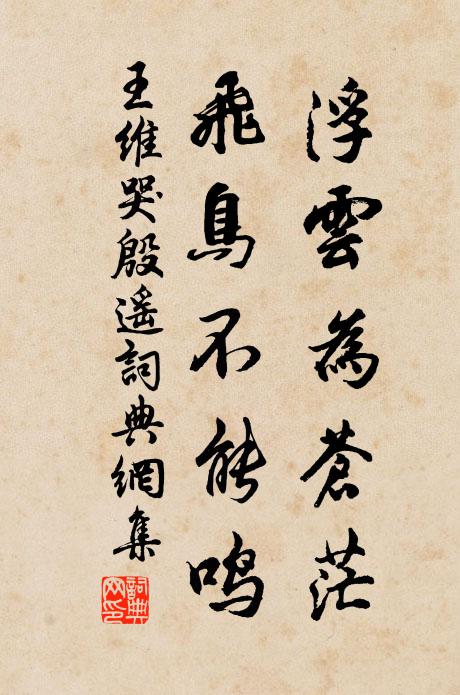 浮雲為蒼茫
飛鳥不能鳴
王維哭殷遥詞典網集
詞典